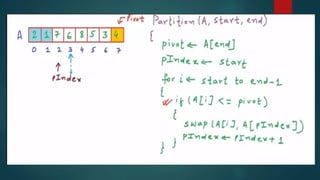 Pivot Partition(A, start, end)
A 2 1 7 6 8 5 3 4
0 1 2 3 4 5 6 7
pIndex
{
pivot ← A[end]
pIndex ← start
for i ← start to end-1
{
if (A[i] <= pivot)
{
swap (A[i], A[pIndex])
pIndex ← pIndex + 1
}
}